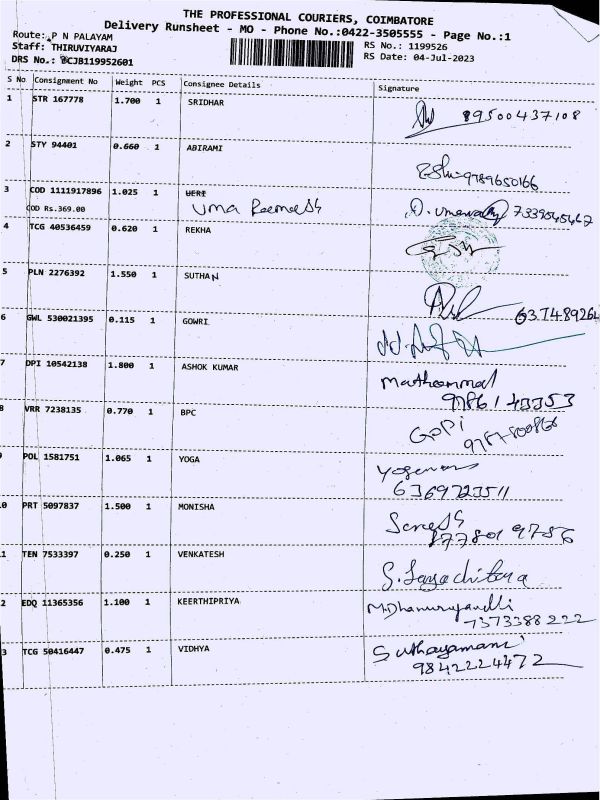 THE PROFESSIONAL COURIERS, COIMBATORE
Delivery Runsheet - MO - Phone No.:0422-3505555 - Page No.:1
Route: P N PALAYAM
RS No.: 1199526
Staff: THIRUVIYARAJ
RS Date: 04-Jul-2023
DRS No.: CJB119952601
S No Consignment No Weight PCS Consignee Details Signature
1 STR 167778 1.700 1 SRIDHAR 89500437108
2 STY 94401 0.660 1 ABIRAMI 9789650166
3 COD 1111917896 1.025 1 UERI
COD Rs.369.00 Uma
4 TCG 40536459 0.620 1 REKHA
5 PLN 2276392 1.550 1 SUTHAN
6 GWL 530021395 0.115 1 GOWRI
7 DPI 10542138 1.800 1 ASHOK KUMAR
9786143353
8 VRR 7238135 0.770 1 BPC GOPi
9 POL 1581751 1.065 1 YOGA
6369723511
0 PRT 5097837 1.500 1 MONISHA
1 TEN 7533397 0.250 1 VENKATESH
2 EDQ 11365356 1.100 1 KEERTHIPRIYA
7373388222
3 TCG 50416447 0.475 1 VIDHYA Suthayamani
9842224472